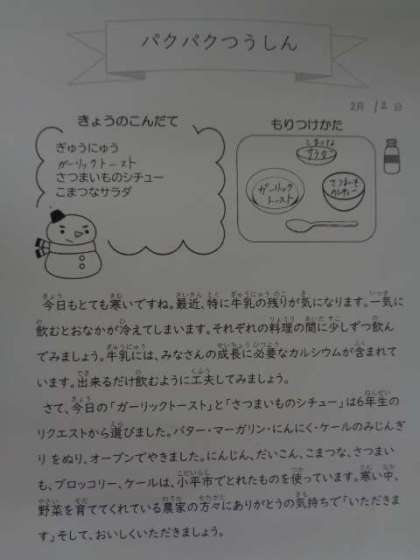 パクパクつうしん
2月 12日
きょうのこんだて
ぎゅうにゅう
ガーリックトースト
さつまいものシチュー
こまつなサラダ
もりつけかた
こまつな
サラダ
ガーリック
トースト
さつまいも
のシチュー
今日もとても寒いですね。最近、特に牛乳の残りが気になります。一気に
飲むとおなかが冷えてしまいます。それぞれの料理の間に少しずつ飲ん
でみましょう。牛乳には、みなさんの成長に必要なカルシウムが含まれて
います。出来るだけ飲むように工夫してみましょう。
さて、今日の「ガーリックトースト」と「さつまいものシチュー」は6年生の
リクエストから選びました。バター・マーガリン・にんにく・ケールのみじんぎ
りをぬり、オーブンでやきました。にんじん、だいこん、こまつな、さつまい
も、ブロッコリー、ケールは、小平市でとれたものを使っています。寒い中、
野菜を育ててくれている農家の方々にありがとうの気持ちで「いただきま
す」そして、おいしくいただきましょう。